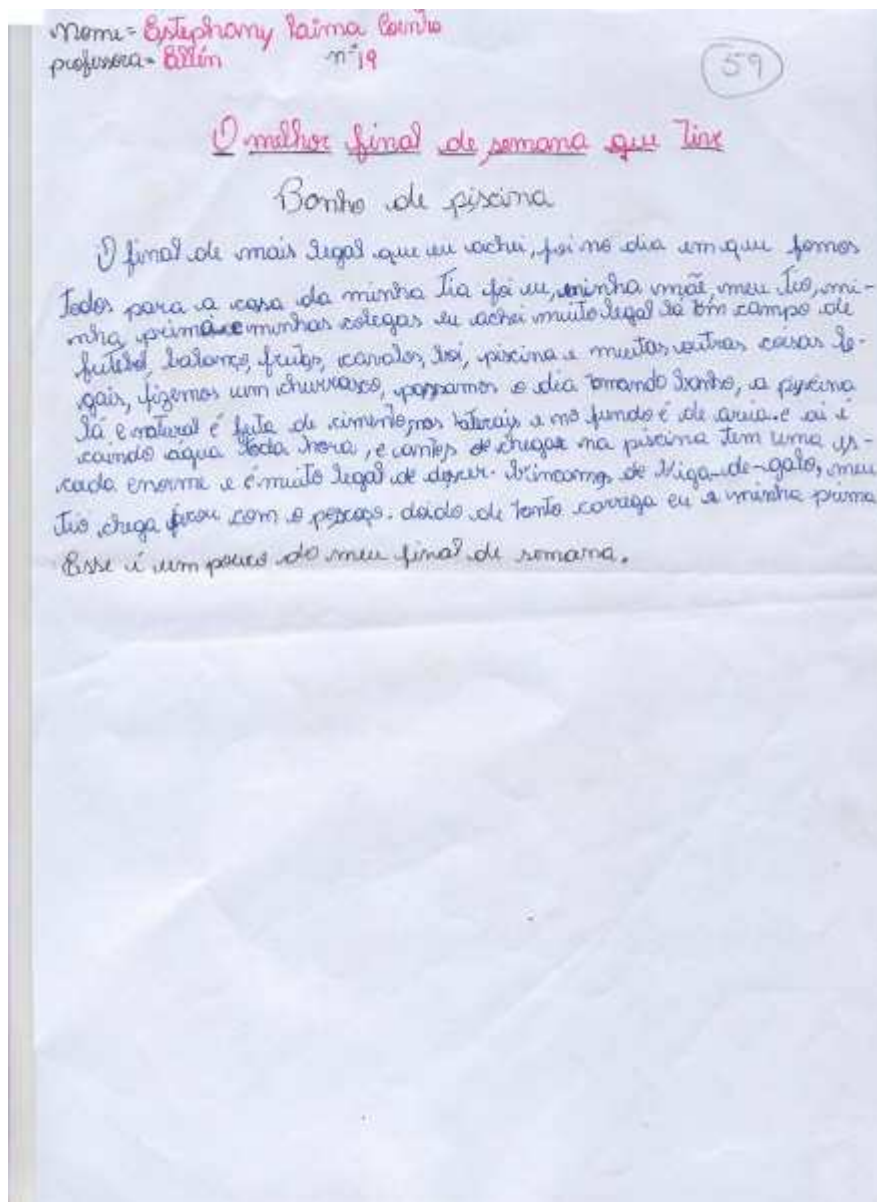 nome = Estephany Laima Coinho
professora = Ellín nº 19
59
O melhor final de semana que Tive
Banho de piscina
O final de mais legal que eu achei, foi no dia em que fomos
todos para a casa da minha tia foi eu, minha mãe, meu tio, mi-
nha prima e minhas colegas eu achei muito legal lá tem campo de
futebol, balanço, frutas, cavalos, boi, piscina e muitas outras coisas le-
gais, fizemos um churrasco, passamos o dia tomando banho, a piscina
lá e natural é feita de cimento, nas laterais e no fundo é de areia. e ai é
caindo agua toda hora, e antes de chegar na piscina tem uma es-
cada enorme e é muito legal de descer. brincamos de Briga-de-galo, meu
tio chega ficou com o pescoço. doido de tanto carrega eu e minha prima
Esse é um pouco do meu final de semana.